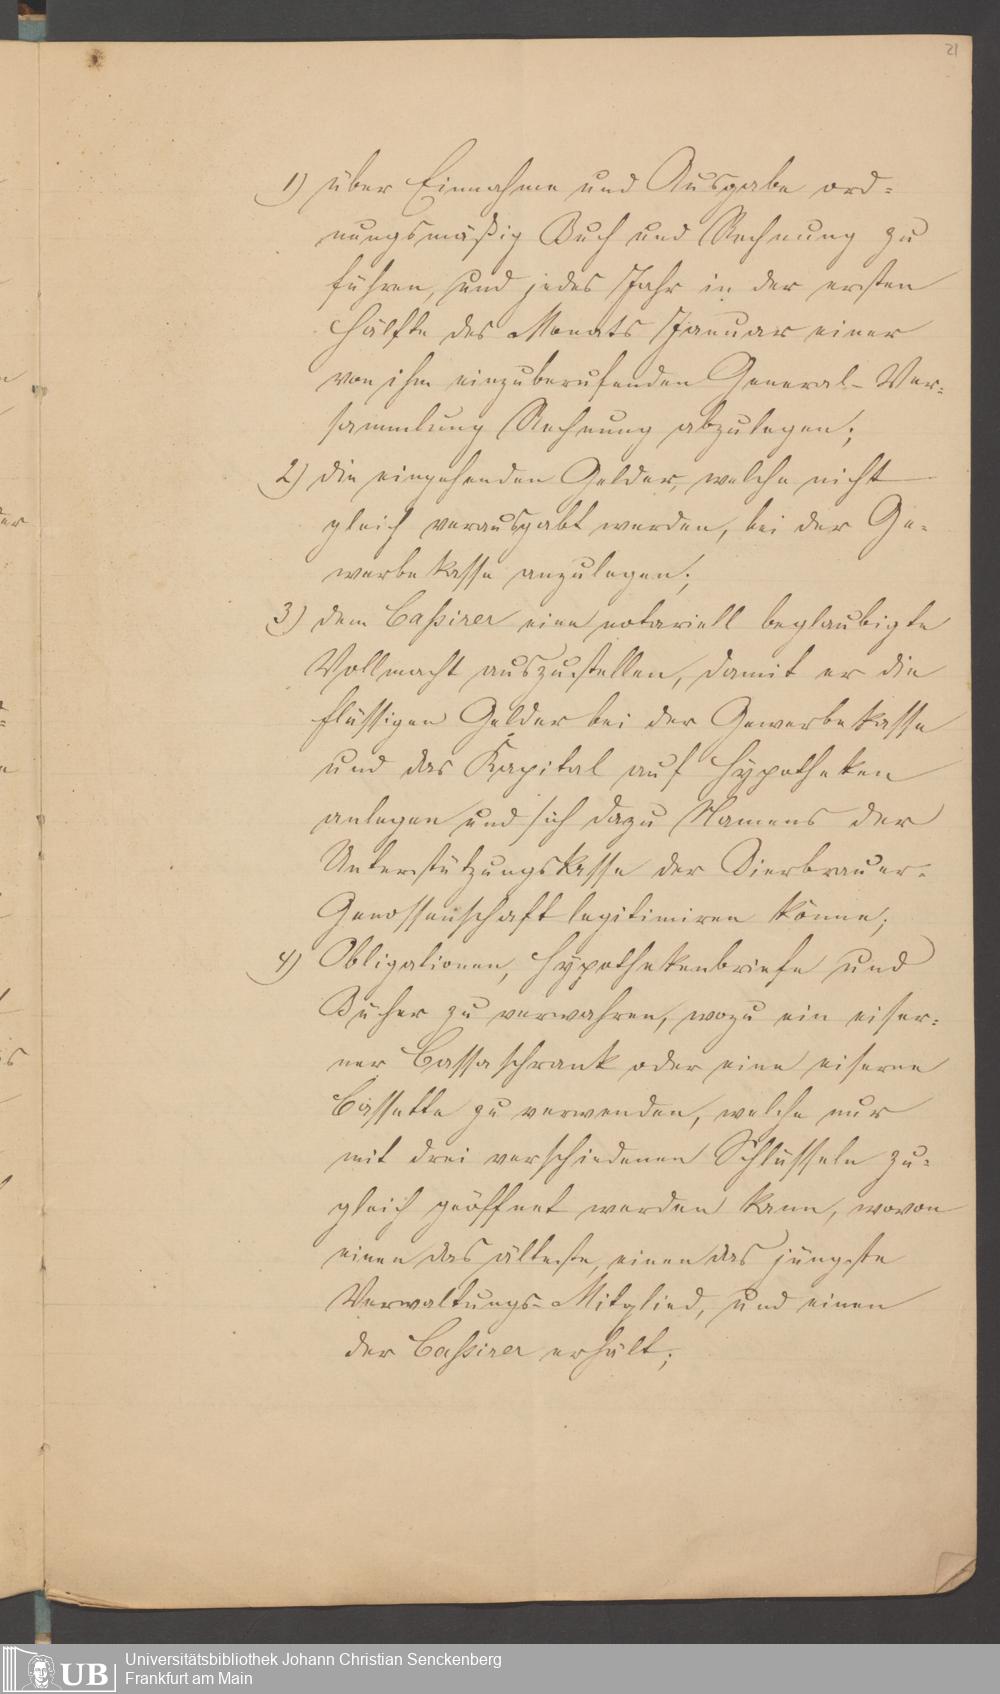 21
1) über Einnahme und Ausgabe ord=
nungsmäßig Buch und Rechnung zu
führen, und jedes Jahr in der ersten
Hälfte des Monats Januar einer
von ihm einzuberufenden General-Ver=
sammlung Rechnung abzulegen;
2) die eingehenden Gelder, welche nicht
gleich verausgabt werden, bei der Ge=
werbekasse anzulegen;
3) dem Cassirer eine notariell beglaubigte
Vollmacht auszustellen, damit er die
flüssigen Gelder bei der Gewerbekasse
und das Kapital auf Hypotheken
anlegen und sich dazu Namens der
Unterstützungskasse der Bierbrauer-
Genossenschaft legitimiren könne;
4) Obligationen, Hypothekenbriefe und
Bücher zu verwahren, wozu ein eiser=
ner Cassaschrank oder eine eiserne
Cassette zu verwenden, welche nur
mit drei verschiedenen Schlüsseln zu=
gleich geöffnet werden kann, wovon
einen das älteste, einen das jüngste
Verwaltungs-Mitglied, und einen
der Cassirer erhält;
UB
Universitätsbibliothek Johann Christian Senckenberg
Frankfurt am Main